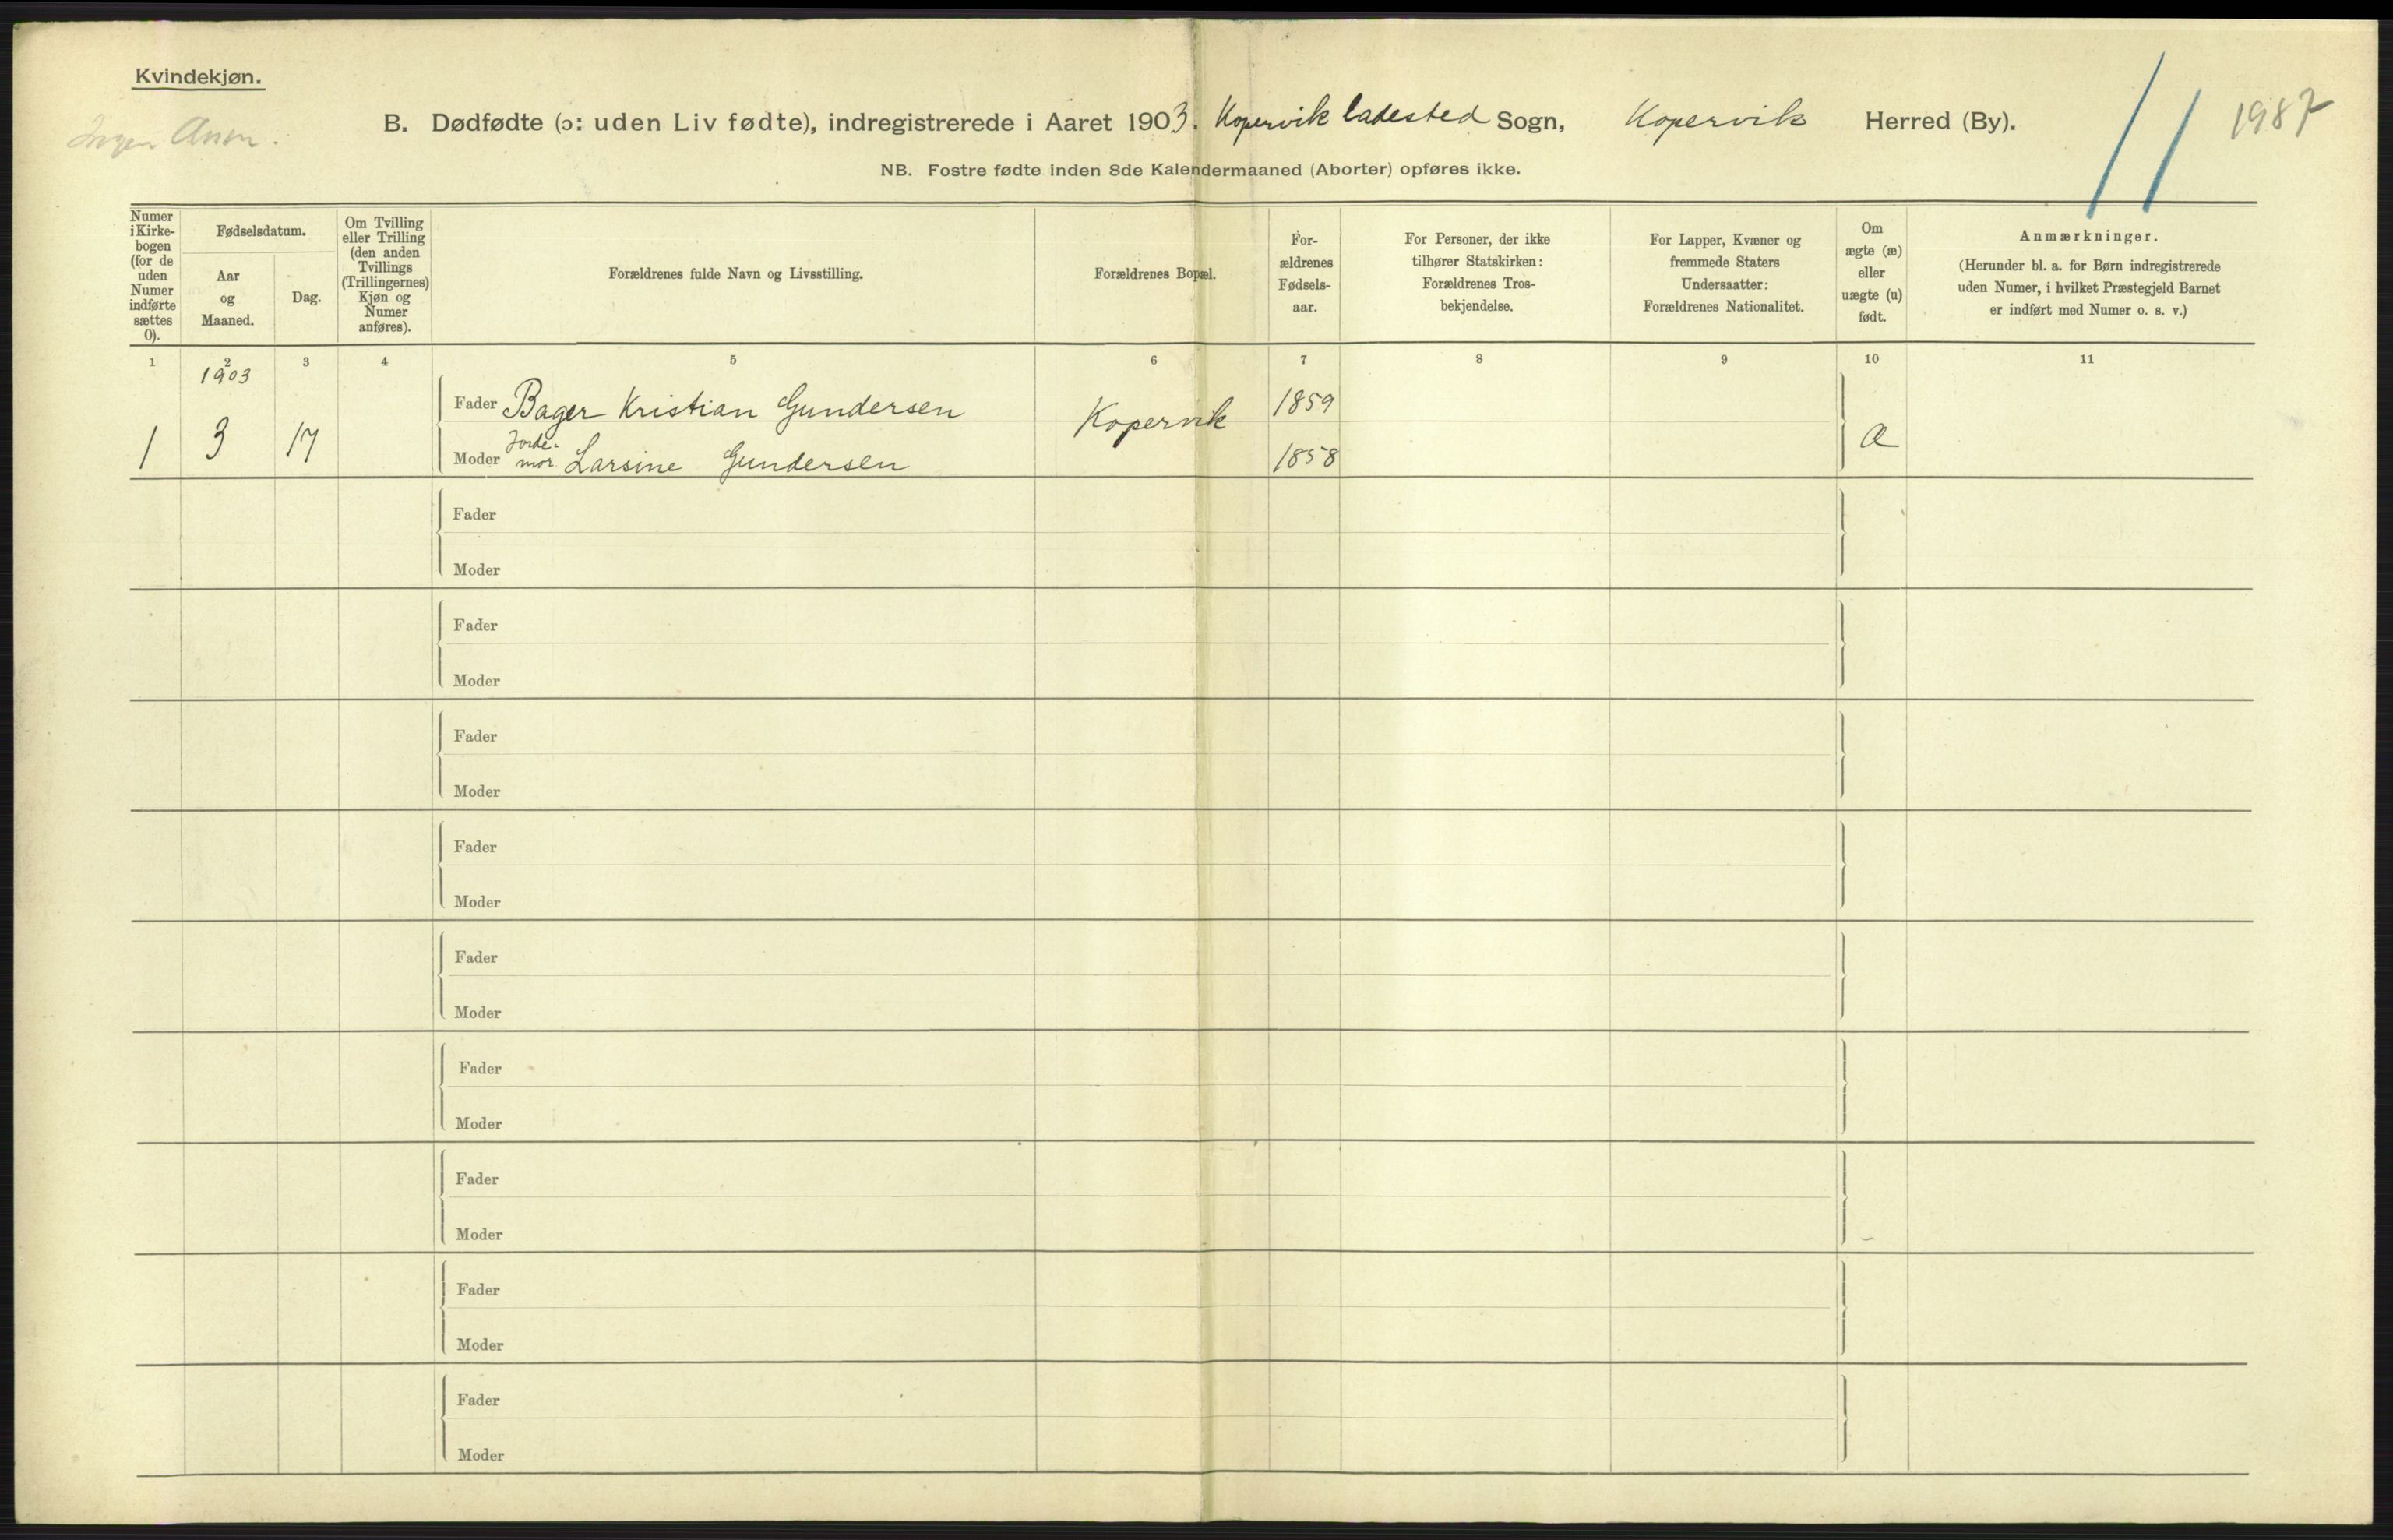 Kvindekjøn.
Ingen Anm.
B. Dødfødte (ɔ: uden Liv fødte), indregistrerede i Aaret 1903. Kopervik ladested Sogn, Kopervik Herred (By).
1987
NB. Fostre fødte inden 8de Kalendermaaned (Aborter) opføres ikke.
Numer i Kirke- bogen (for de uden Numer indførte sættes 0).
Fødselsdatum.
Aar og Maaned.
Dag.
Om Tvilling eller Trilling (den anden Tvillings (Trillingernes) Kjøn og Numer anføres).
Forældrenes fulde Navn og Livsstilling.
Forældrenes Bopæl.
For- ældrenes Fødsels- aar.
For Personer, der ikke tilhører Statskirken: Forældrenes Tros- bekjendelse.
For Lapper, Kvæner og fremmede Staters Undersaatter: Forældrenes Nationalitet.
Om ægte (æ) eller uægte (u) født.
Anmærkninger.
(Herunder bl. a. for Børn indregistrerede uden Numer, i hvilket Præstegjeld Barnet er indført med Numer o. s. v.)
1 2 3 4 5 6 7 8 9 10 11
1903
Fader Bager Kristian Gundersen Kopervik 1859
1 3 17 Moder Jorde- mor. Larsine Gundersen 1858 Æ
Fader
Moder
Fader
Moder
Fader
Moder
Fader
Moder
Fader
Moder
Fader
Moder
Fader
Moder
Fader
Moder
Fader
Moder